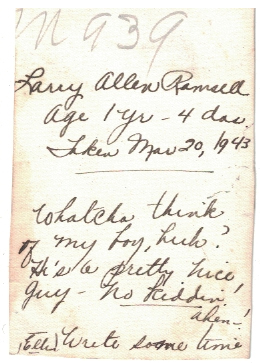 M 939
Larry Allen Ramsell
Age 1 yr - 4 das.
Taken Mar 20, 1943
Whatcha think
of my boy, huh?
He's a pretty nice
guy - no kiddin!
Ahem-!
Write some time